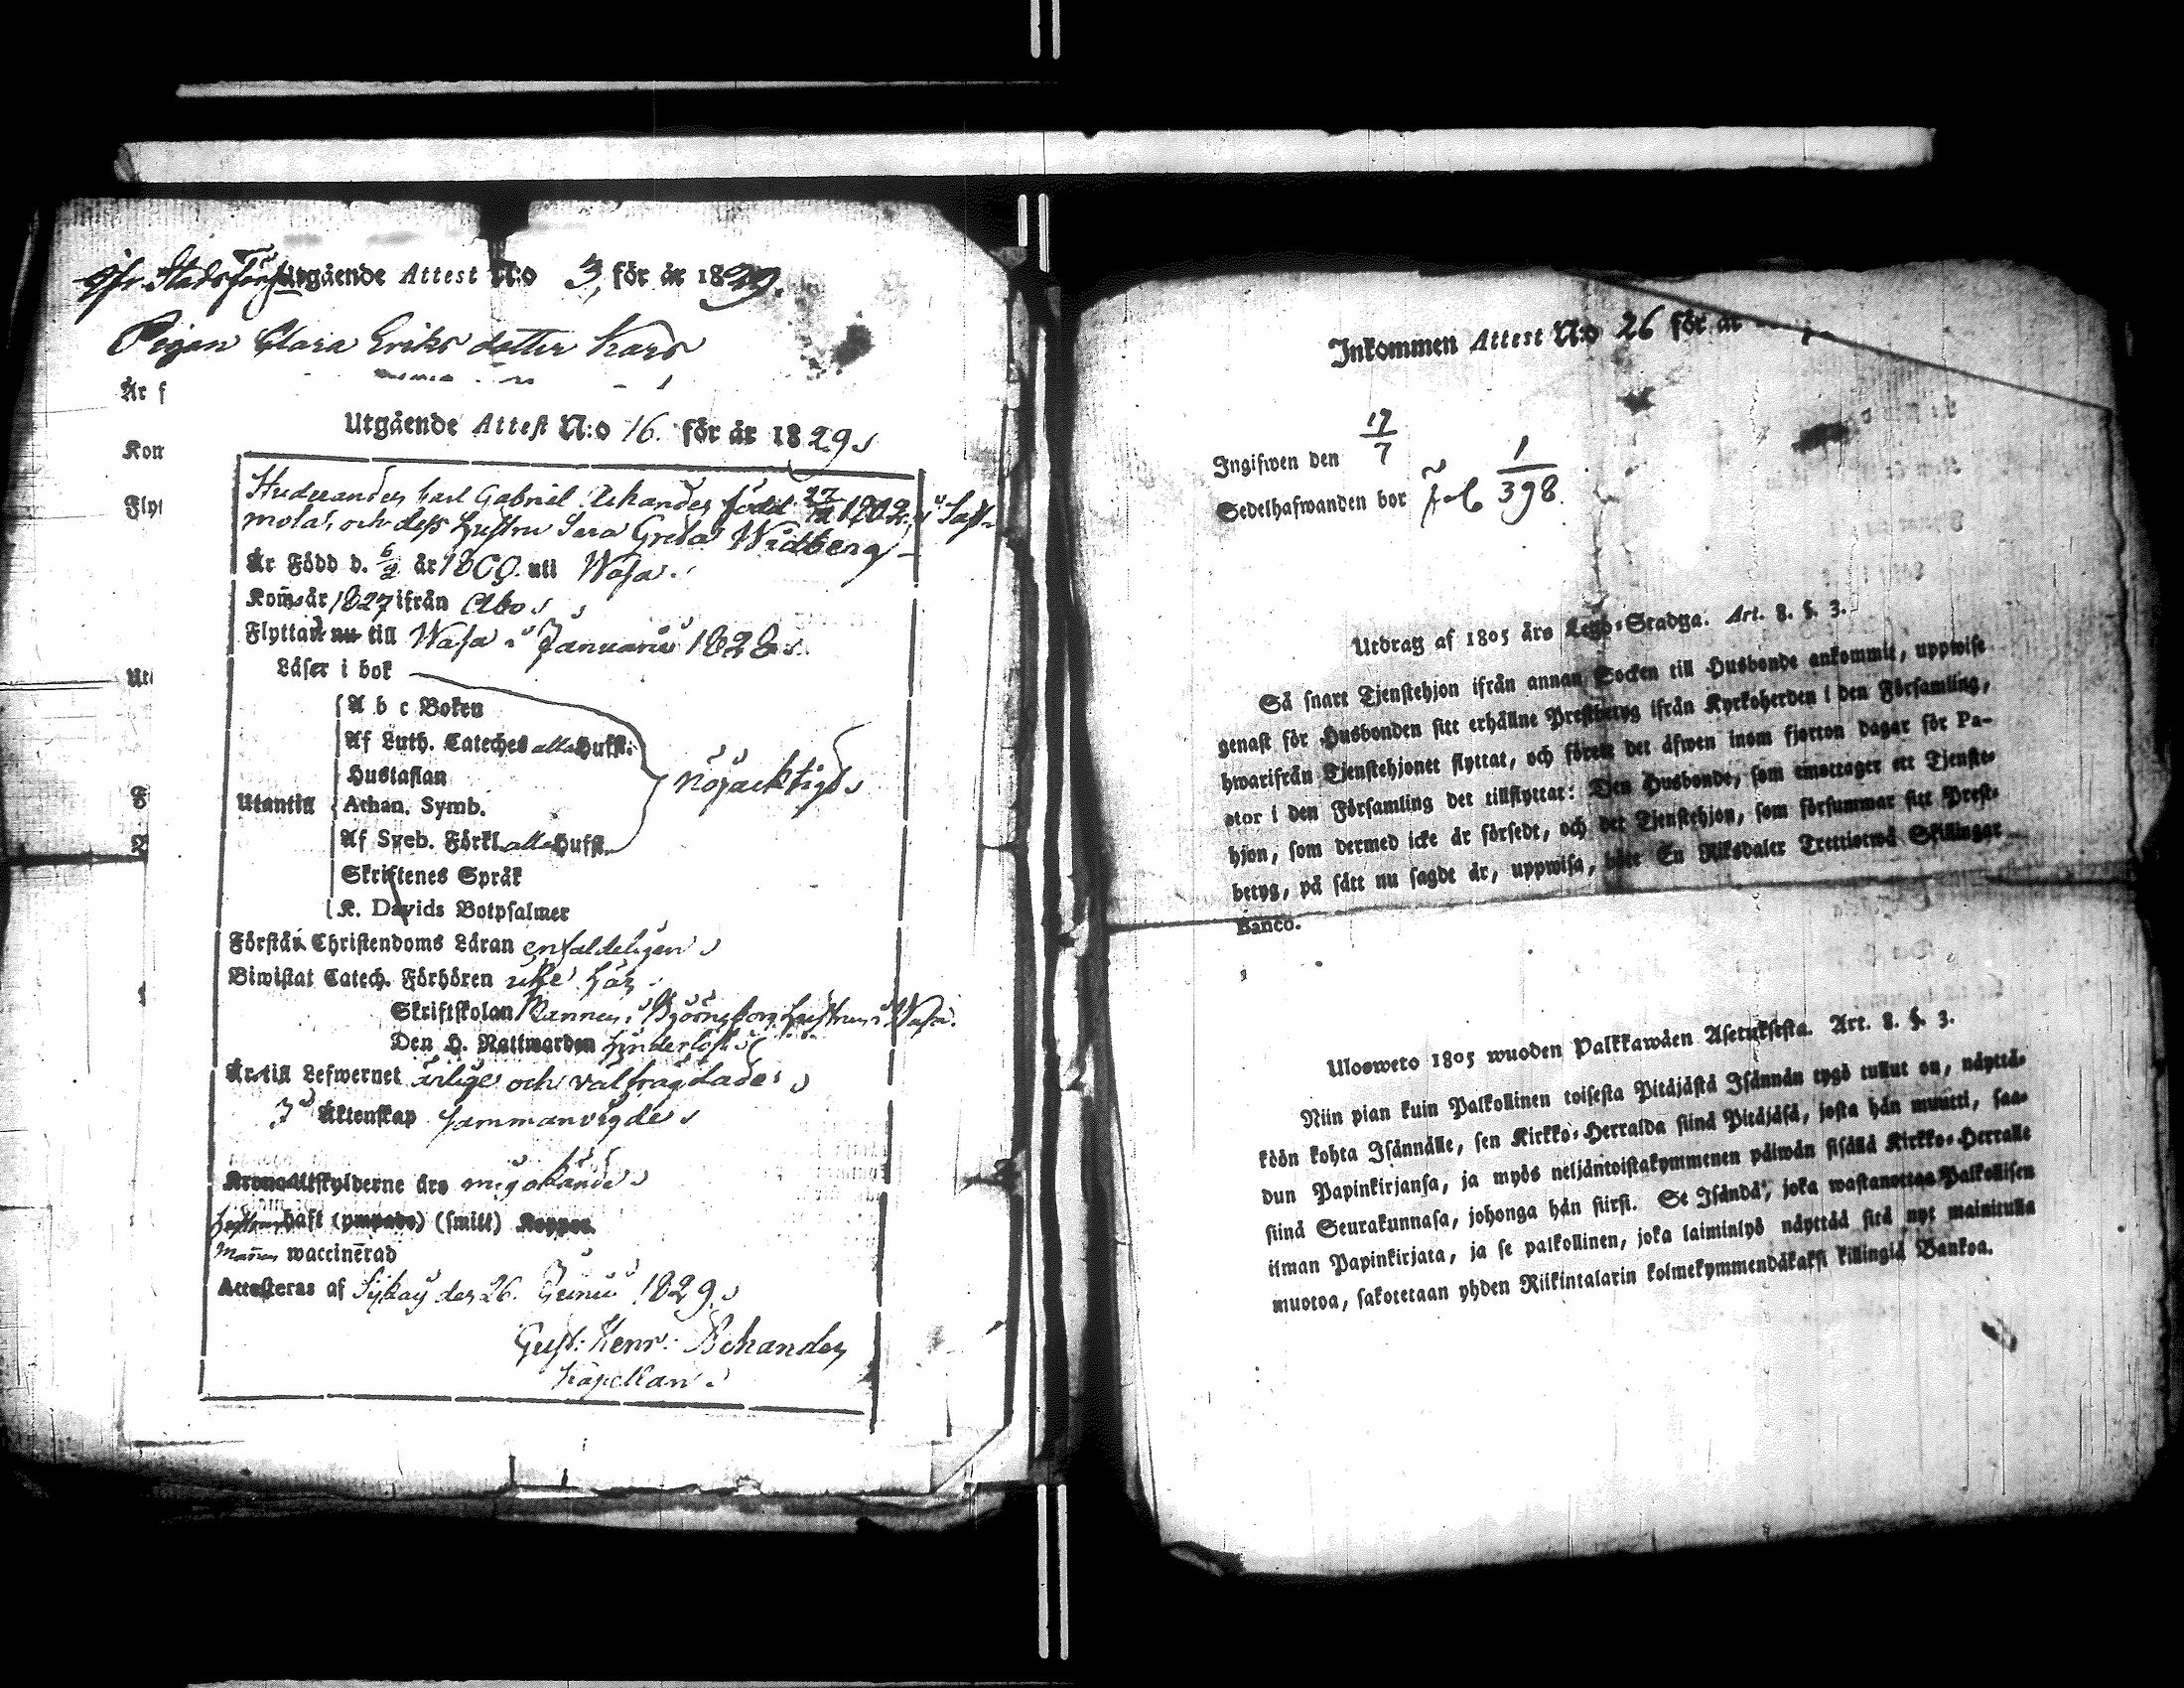 Utgående Attest N:o 3, för år 1829.
Pigan Clara Eriks dotter
Är f
Kom
Flyt
Utgående Attest N:o 16. för år 1829
Studeranden Carl Gabriel född 1802 i
mola, och dess Hustru Sara Greta Widberg
Är Född d. 6/2 år 1809. uti Wasa.
Kom år 1827 ifrån Åbo
Flyttade nu till Wasa i Januarii 1828
Läser i bok
A b c Boken
Af Luth. Cateches alla Hufst:
Hustaflan
Utantill
Athan. Symb.
nöjacktigt
Af Sveb. Förkl. alla Hufst.
Skriftenes Språk
K. Davids Botpsalmer
Förstår Christendoms Läran enfaldeligen
Biwistat Catech. Förhören icke här
Skriftskolan Mannen i Björneborg, Hustrun i Wasa.
Den H. Nattwarden
Är till Lefwernet ärlige och välfrägdade
I Äktenskap sammanvigde
Krono Utskylderne äro mig okände
Hustrun haft (ympade) (smitt) Koppor
Mannen waccinerad
Attesteras af den 26. Junii 1829.
Gust: Henr:
Kapellan
Inkommen Attest N:o 26 för år
Ingifwen den 17/7
Sedelhafwanden bor fol 1/398.
Utdrag af 1805 års Lego-Stadga. Art. 8. §. 3.
Så snart Tjenstehjon ifrån annan Socken till Husbonde ankommit, uppwise
genast för Husbonden sitt erhållne Prestbetyg ifrån Kyrkoherden i den Församling,
hwarifrån Tjenstehjonet flyttat, och förete det äfwen inom fjorton dagar för Pa-
stor i den Församling det tillflyttar: Den Husbonde, som emottager ett Tjenste-
hjon, som dermed icke är försedt, och det Tjenstehjon, som försummar sitt Prest-
betyg, på sätt nu sagdt är, uppwisa, böte En Riksdaler Trettiotwå Skillingar
Banco.
Ulosweto 1805 wuoden Palkkawäen Asetuksesta. Art. 8. §. 3.
Niin pian kuin Palkollinen toisesta Pitäjästä Isännän tygö tullut on, näyttä-
köön kohta Isännälle, sen Kirkko-Herralda siinä Pitäjäsä, josta hän muutti, saa-
dun Papinkirjansa, ja myös neljäntoistakymmenen päiwän sisällä Kirkko-Herralle
siinä Seurakunnasa, johonga hän siirsi. Se Isändä, joka wastanottaa Palkollisen
ilman Papinkirjata, ja se palkollinen, joka laiminlyö näyttää sitä nyt mainitulla
muotoa, sakotetaan yhden Riikintalarin kolmekymmendäkaksi killingiä Bankoa.